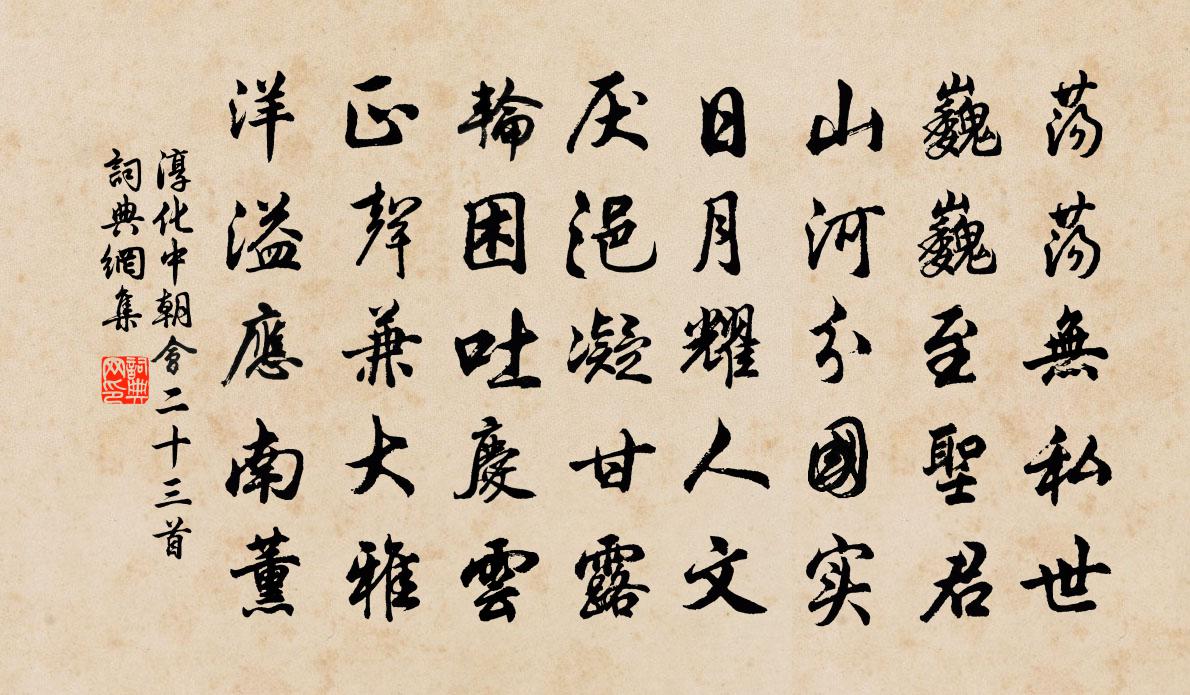 蕩蕩無私世
巍巍至聖君
山河分國实
日月耀人文
厌浥凝甘露
輪困吐慶雲
正聲兼大雅
洋溢應南薰
淳化中朝會二十三首
詞典網集
詞典网印